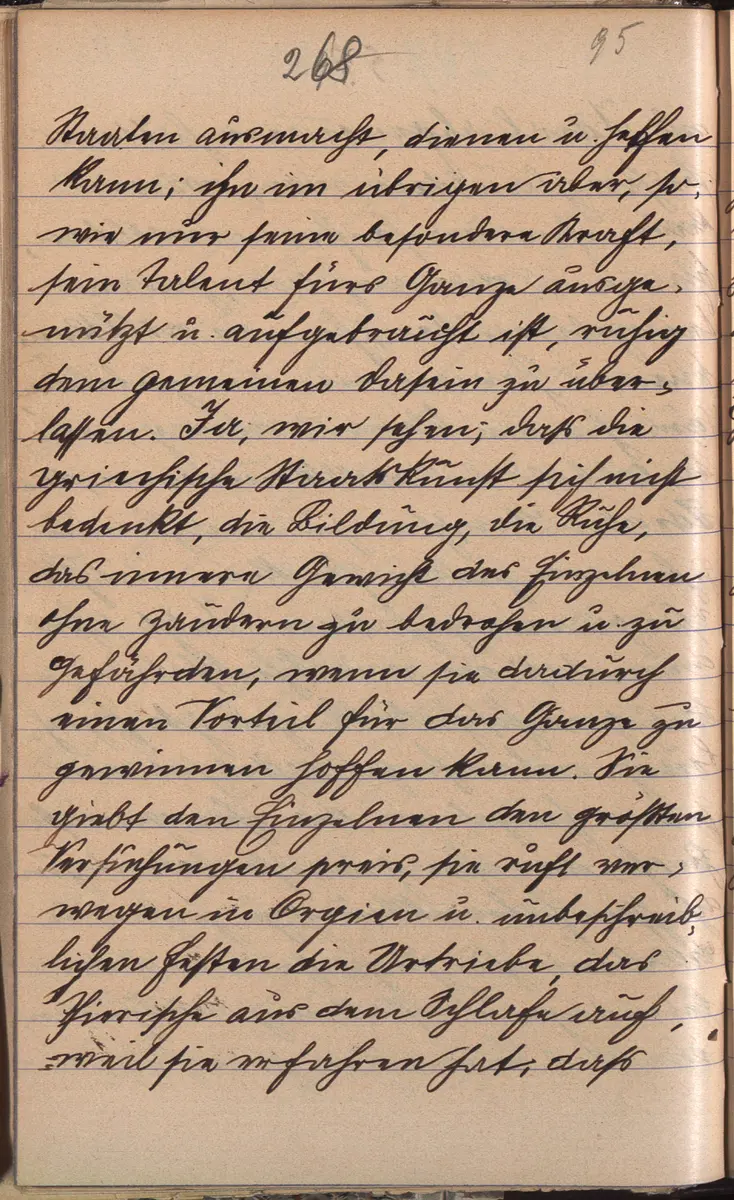 268
95
Staaten ausmacht, dienen u. helfen
kann; ihn im übrigen aber, so-
wie nur seine besondere Kraft,
sein Talent fürs Ganze ausge-
nützt u. aufgebraucht ist, ruhig
dem gemeinen Dasein zu über-
lassen. Ja, wir sehen, daß die
griechische Staatskunst sich nicht
bedenkt, die Bildung, die Ruhe,
das innere Gewicht des Einzelnen
ohne Zaudern zu bedrohen u. zu
gefährden, wenn sie dadurch
einen Vorteil für das Ganze zu
gewinnen hoffen kann. Sie
giebt den Einzelnen den größten
Versuchungen preis, sie ruft ver-
wegen in Orgien u. unbeschreib-
lichen Festen die Urtriebe, das
Tierische aus dem Schlafe auf,
weil sie erfahren hat, daß